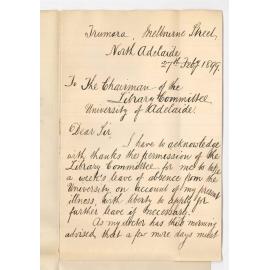 Trumora, Melbourne Street,
North Adelaide
27th Feby 1899.
To The Chairman of the
Library Committee
University of Adelaide.
Dear Sir
I have to acknowledge
with thanks the permission of the
Library Committee for me to take
a week's leave of absence from the
University on account of my present
illness, with liberty to apply for
further leave if necessary.
As my doctor has this morning
advised that a few more days must